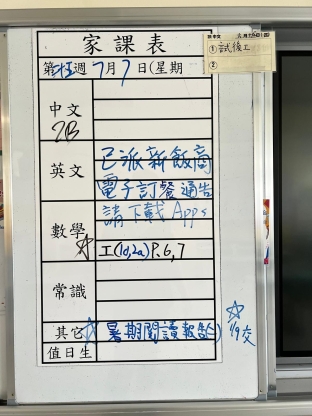 家課表
第 週 7月7日(星期
中文
2B
英文
已派新飯商
電子訂餐通告
請下載 Apps
數學
工(1d,2a)P.6,7
常識
其它 ☆ 暑期閱讀報告
☆ 1/9交
值日生
① 試後工
②